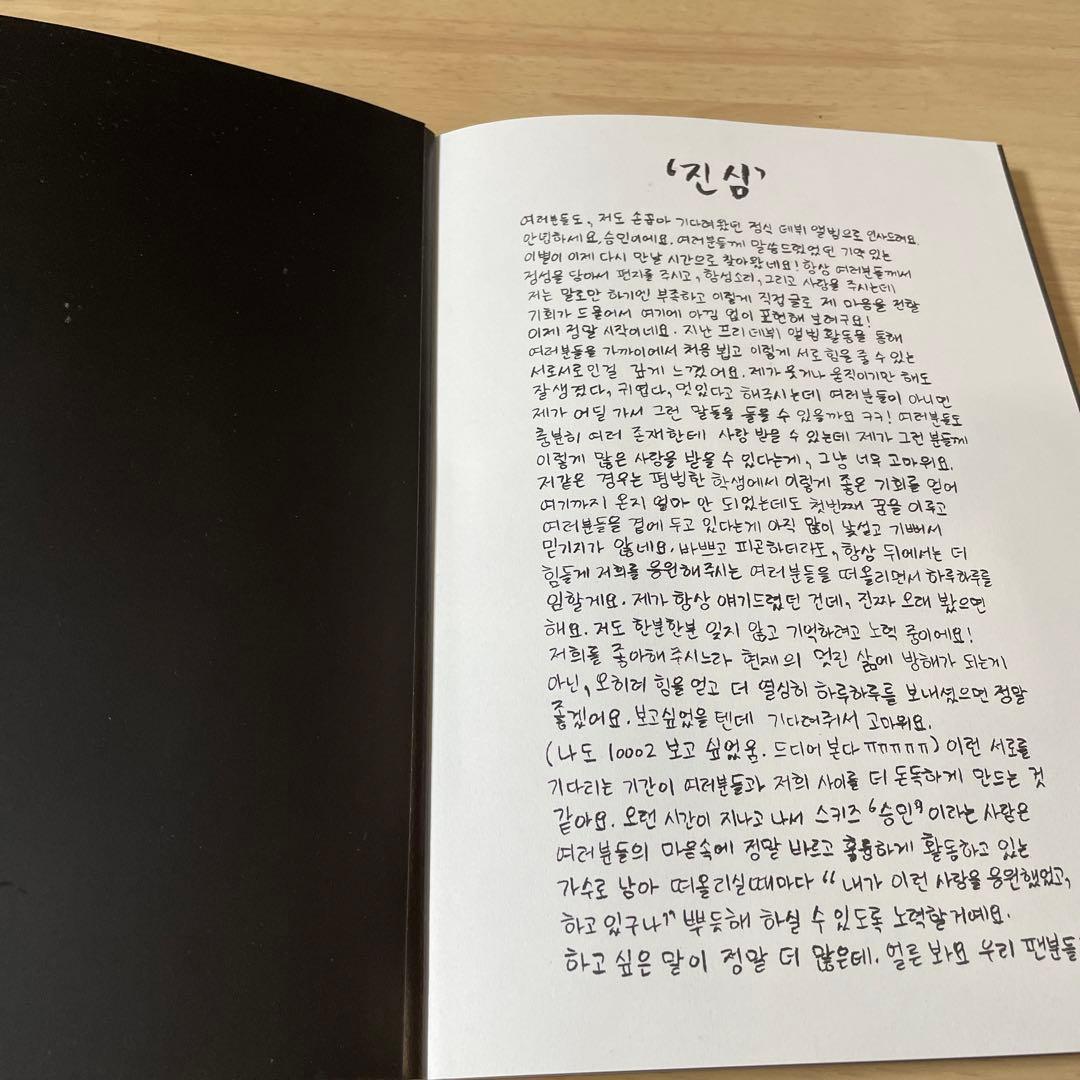 '진심'
여러분들도, 저도 손꼽아 기다려왔던 정식 데뷔 앨범으로 인사드려요.
안녕하세요, 승민이에요. 여러분들께 말씀드렸었던 기약 있는
이별이 이제 다시 만날 시간으로 찾아왔네요! 항상 여러분들께서
정성을 담아서 편지를 주시고, 함성소리, 그리고 사랑을 주시는데
저는 말로만 하기엔 부족하고 이렇게 직접 글로 제 마음을 전할
기회가 드물어서 여기에 아낌 없이 표현해 보려구요!
이제 정말 시작이네요. 지난 프리데뷔 앨범 활동을 통해
여러분들을 가까이에서 처음 뵙고 이렇게 서로 힘을 줄 수 있는
서로서로인걸 깊게 느꼈어요. 제가 웃거나 움직이기만 해도
잘생겼다, 귀엽다, 멋있다고 해주시는데 여러분들이 아니면
제가 어딜 가서 그런 말들을 들을 수 있을까요 ㅋㅋ! 여러분들도
충분히 여러 존재한테 사랑 받을 수 있는데 제가 그런 분들께
이렇게 많은 사랑을 받을 수 있다는게, 그냥 너무 고마워요.
저같은 경우는 평범한 학생에서 이렇게 좋은 기회를 얻어
여기까지 온지 얼마 안 되었는데도 첫번째 꿈을 이루고
여러분들을 곁에 두고 있다는게 아직 많이 낯설고 기뻐서
믿기지가 않네요. 바쁘고 피곤하더라도, 항상 뒤에서는 더
힘들게 저희를 응원해주시는 여러분들을 떠올리면서 하루하루를
임할게요. 제가 항상 얘기드렸던 건데, 진짜 오래 봤으면
해요. 저도 한분한분 잊지 않고 기억하려고 노력 중이에요!
저희를 좋아해주시느라 현재의 멋진 삶에 방해가 되는게
아닌, 오히려 힘을 얻고 더 열심히 하루하루를 보내셨으면 정말
좋겠어요. 보고싶었을텐데 기다려줘서 고마워요.
(나도 10002 보고 싶었움. 드디어 본다 ㅠㅠㅠㅠㅠ) 이런 서로를
기다리는 기간이 여러분들과 저희 사이를 더 돈독하게 만드는 것
같아요. 오랜 시간이 지나고 나서 스키즈 '승민'이라는 사람은
여러분들의 마음속에 정말 바르고 훌륭하게 활동하고 있는
가수로 남아 떠올리실때마다 "내가 이런 사람을 응원했었고,
하고 있구나" 뿌듯해 하실 수 있도록 노력할거예요.
하고 싶은 말이 정말 더 많은데. 얼른 봐요 우리 팬분들